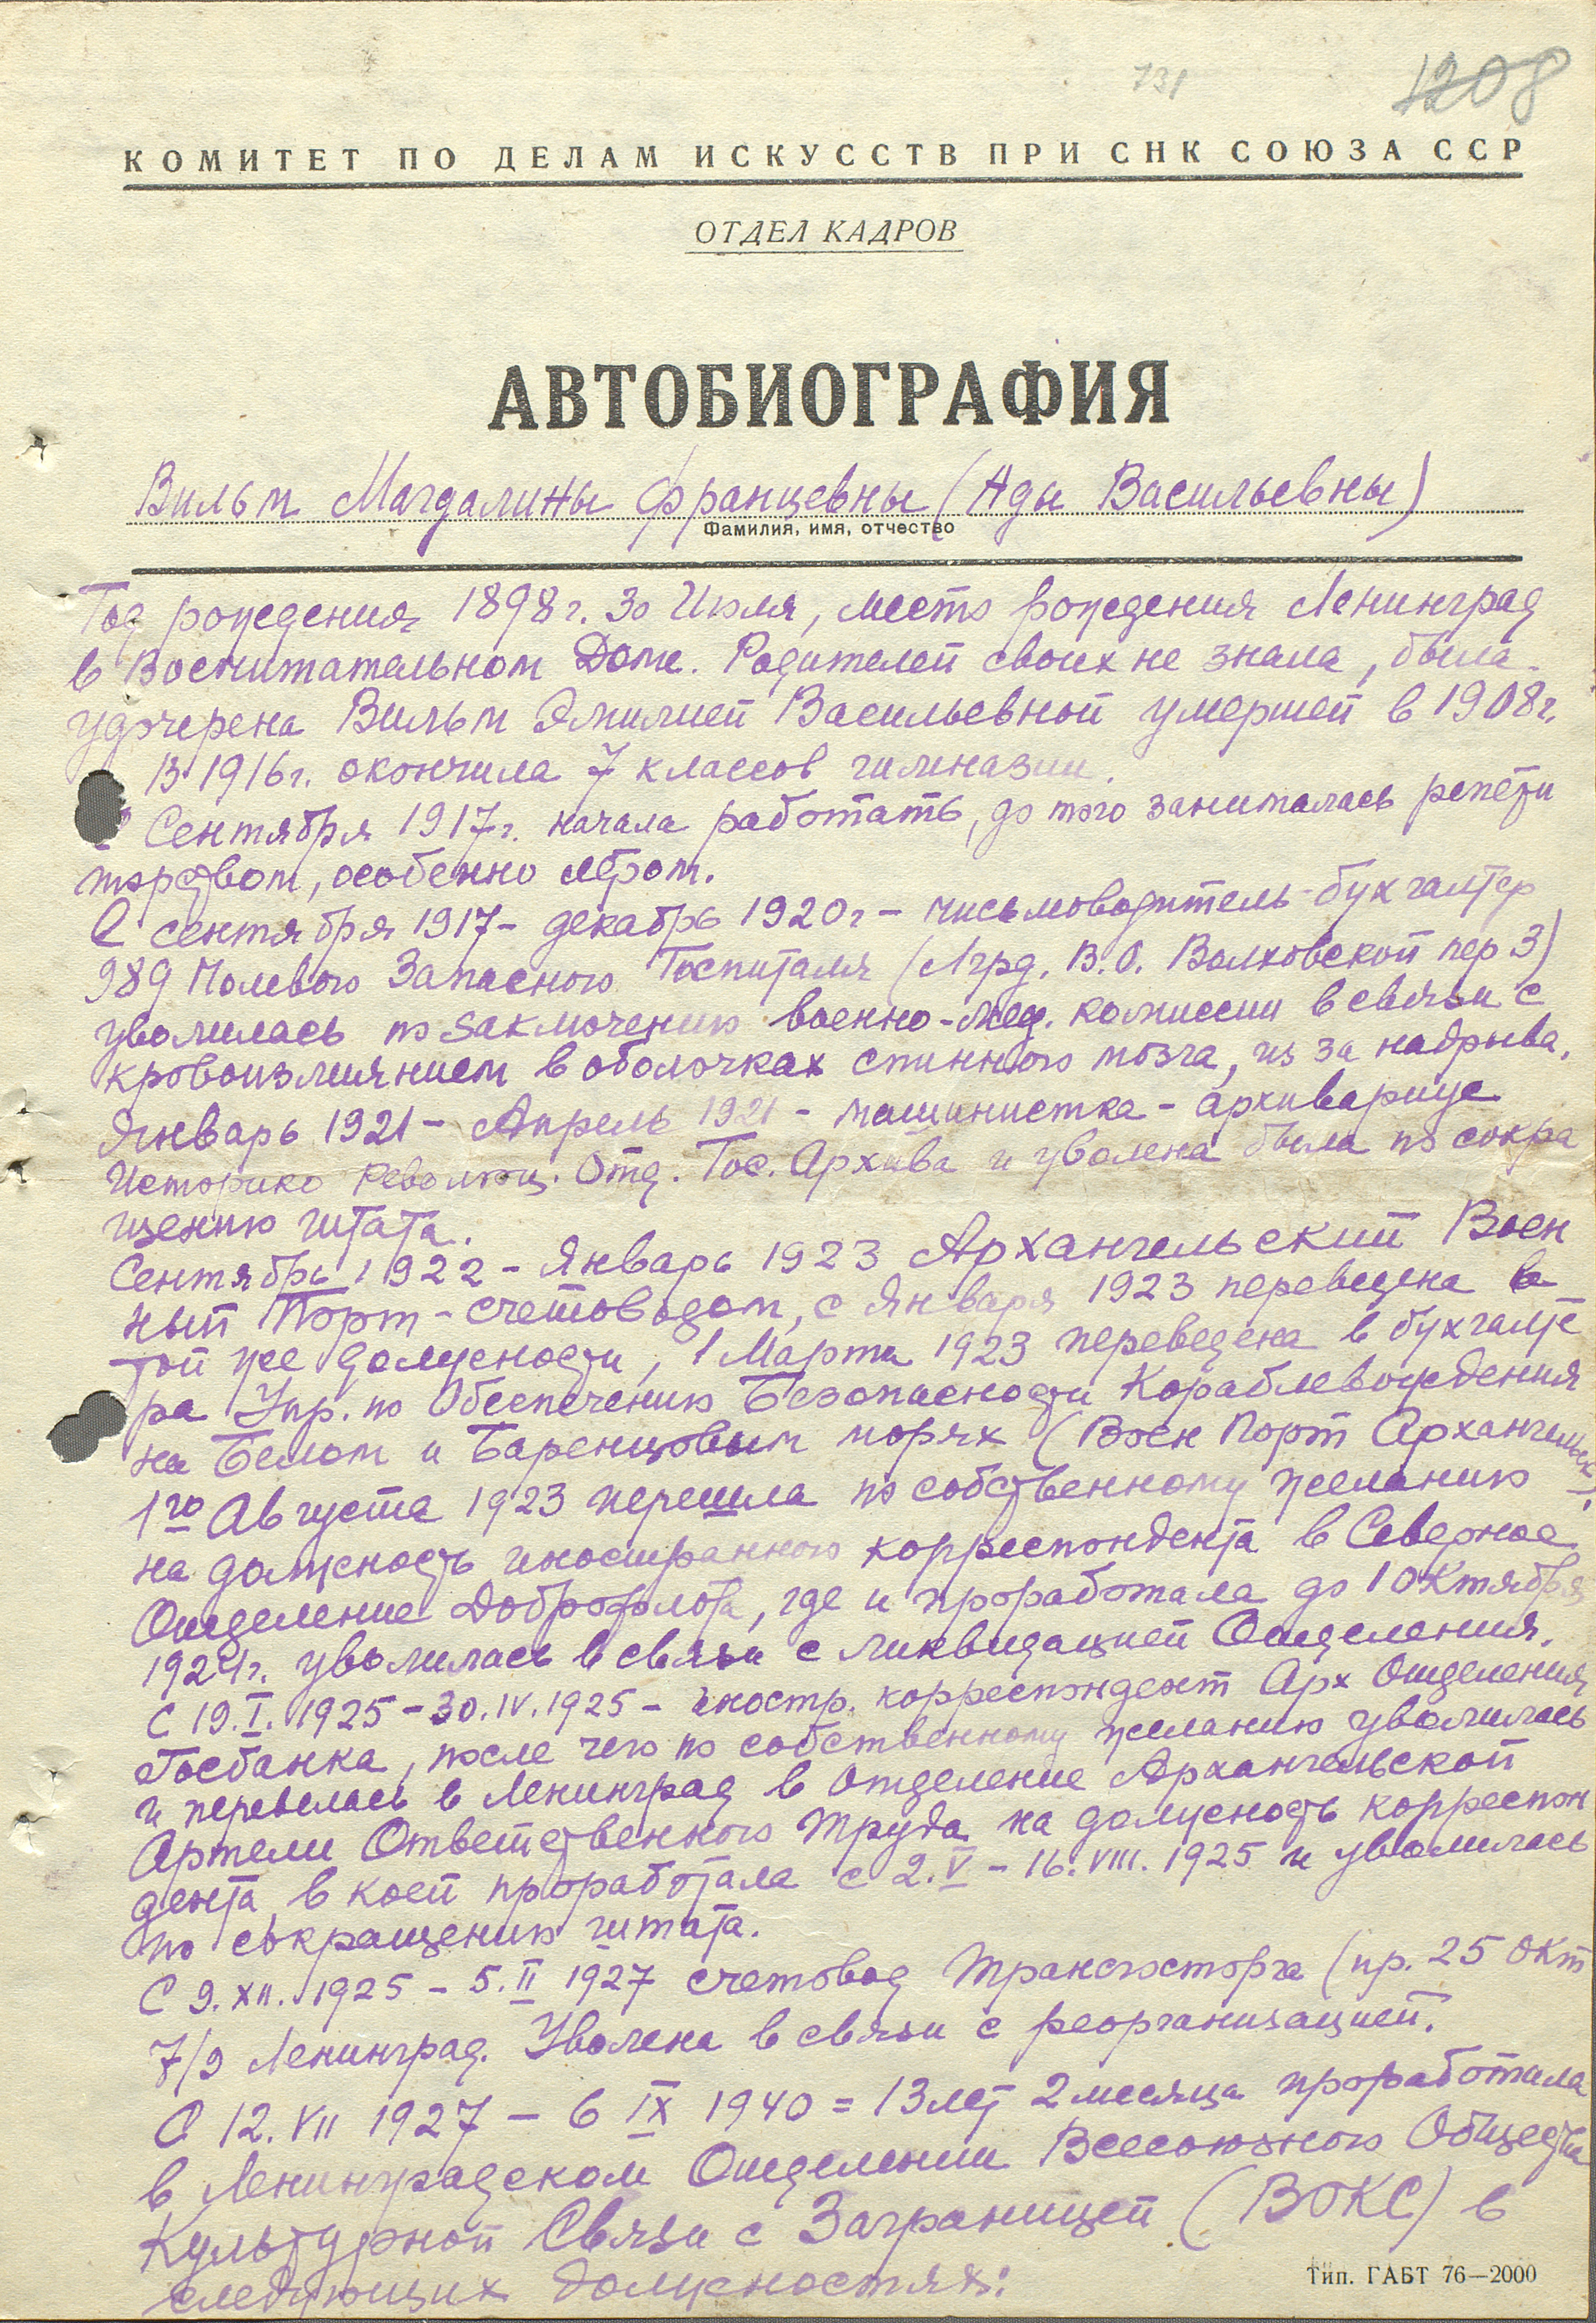 731
1208
КОМИТЕТ ПО ДЕЛАМ ИСКУССТВ ПРИ СНК СОЮЗА ССР
ОТДЕЛ КАДРОВ
АВТОБИОГРАФИЯ
Вильм Магдалины Францевны (Ады Васильевны)
Фамилия, имя, отчество
Год рождения 1898 г. 30 Июля, место рождения Ленинград
в Воспитательном Доме. Родителей своих не знала, была
удочерена Вильм Эмилией Васильевной умершей в 1908 г.
В 1916 г. окончила 7 классов гимназии.
Сентября 1917 г. начала работать, до того занималась репети
торством, особенно летом.
С сентября 1917 - декабрь 1920 г - письмоводитель-бухгалтер
989 Полевого Запасного Госпиталя (Лгрд. В.О. Волховской пер 3)
уволилась по заключению военно-мед. комиссии в связи с
кровоизлиянием в оболочках спинного мозга, из за надрыва.
Январь 1921 - Апрель 1921 - машинистка - архивариус
Историко Революц. Отд. Гос. Архива и уволена была по сокра
щению штата.
Сентябрь 1922 - Январь 1923 Архангельский Воен
ный Порт - счетоводом, с Января 1923 переведена в
той же должности, 1 Марта 1923 переведена в бухгалте
ра Упр. по Обеспечению Безопасности Кораблевождения
на Белом и Баренцовым морях (Воен Порт Архангельск).
1го Августа 1923 перешла по собственному желанию
на должность иностранного корреспондента в Северное
Отделение Доброфлота, где и проработала до 1 Октября
1924 г. уволилась в связи с ликвидацией Отделения.
С 19.I.1925 - 30.IV.1925 - иностр. корреспондент Арх Отделения
Госбанка, после чего по собственному желанию уволилась
и перевелась в Ленинград в Отделение Архангельской
Артели Ответственного Труда на должность корреспон
дента, в коей проработала с 2.V - 16.VIII.1925 и уволилась
по сокращению штата.
С 9.XII.1925 - 5.II 1927 счетовод Трансгосторга (пр. 25 Окт
7/9 Ленинград. Уволена в связи с реорганизацией.
С 12.VII 1927 - 6 IX 1940 = 13 лет 2 месяца проработала
в Ленинградском Отделении Всесоюзного Общества
Культурной Связи с Заграницей (ВОКС) в
следующих должностях:
Тип. ГАБТ 76—2000